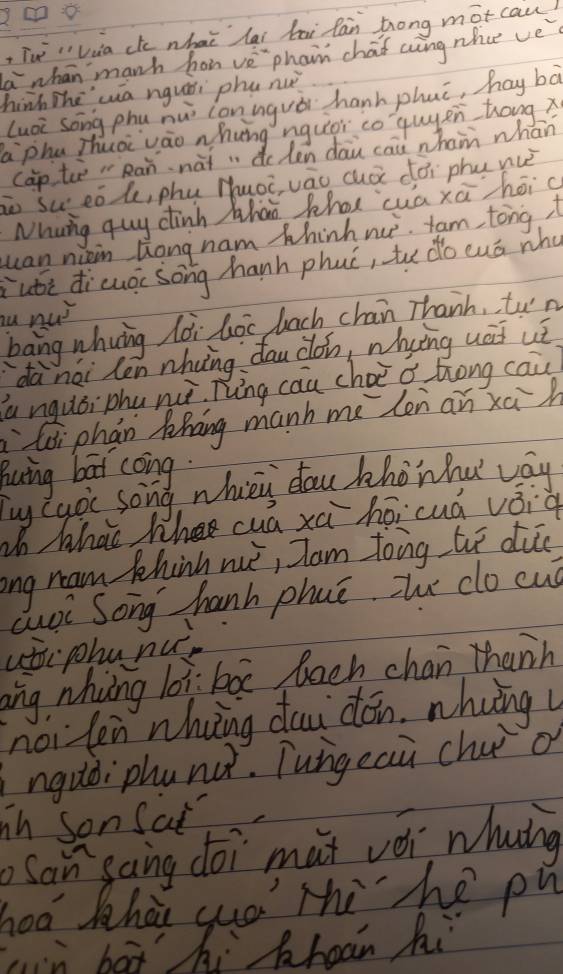 + Từ "vừa được nhắc lại hai lần trong một câu
là nhấn mạnh hơn về phẩm chất cũng như vẻ
hình thể của người phụ nữ
cuộc sống phụ nữ con người hạnh phúc, hay bà
phụ thuộc vào những người có quyền trong x
Cặp từ "Rắn - nát" đc lên đầu câu nhằm nhấn
sự éo le, phụ thuộc vào cuộc đời phụ nữ
Những quy định khắc khe của xã hội c
quan niệm trọng nam khinh nữ, tam tòng, t
ước đi cuộc sống hạnh phúc, tự do cuả như
nữ
bằng những lời bộc bạch chân thành, từ n
đã nói lên những đau đớn, những uất ứ
người phụ nữ. Từng câu chữ ở trong câu
là lời phản kháng mạnh mẽ lên án xã h
những bất công.
Tuy cuộc sống nhiều đau khổ như vậy
khắc khe của xã hội cuả với q
ong nam khinh nữ, Tam tòng tứ đức
cuộc sống hạnh phúc. Tự do cuả
ười phụ nữ.
ằng những lời bộc bạch chân thành
nói lên những đau đớn. những u
người phụ nữ. Từng câu chữ ở
nh son sắt
sẵn sàng đối mặt với những
hoá khắc cuả thì hệ ph
bất kì khoản kì